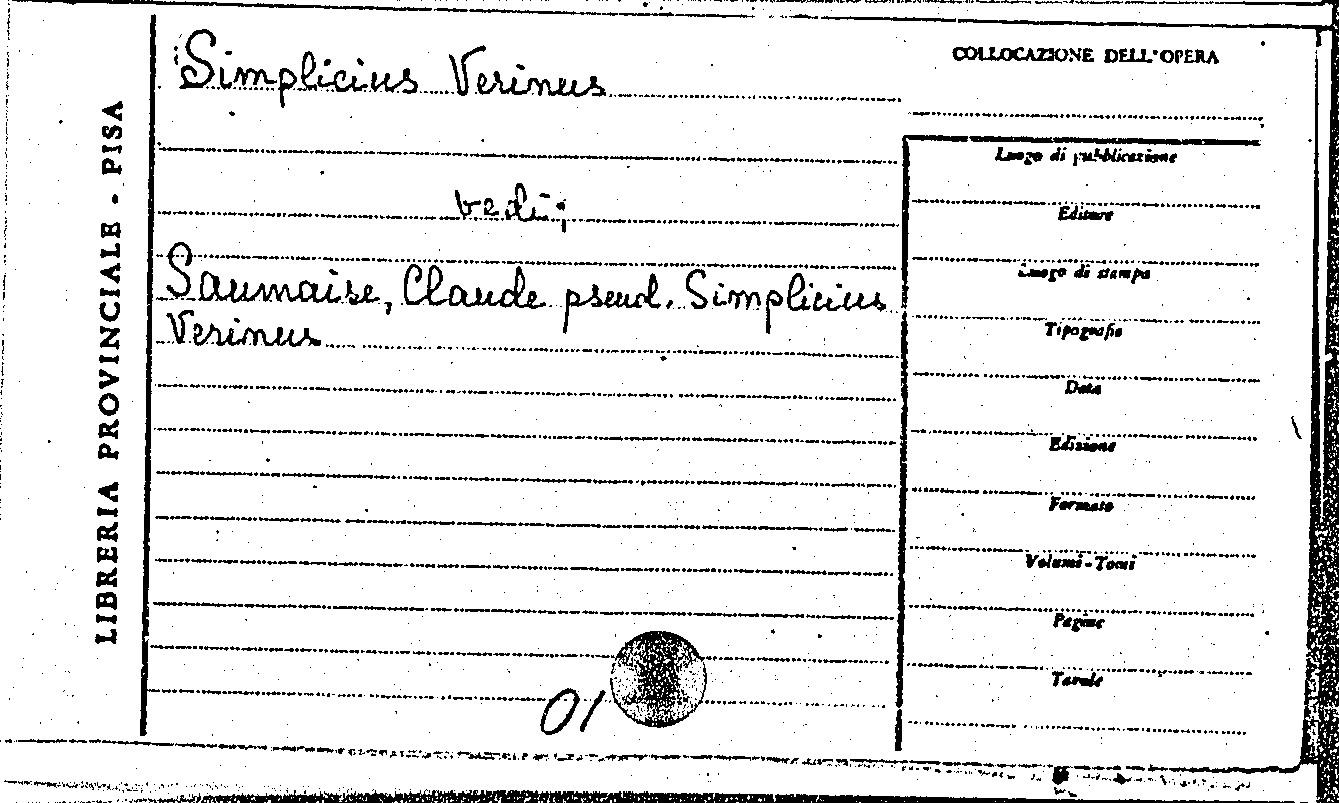 LIBRERIA PROVINCIALE - PISA
Simplicius Verinus
vedi;
Saumaise, Claude pseud. Simplicius
Verinus
01
COLLOCAZIONE DELL'OPERA
Luogo di pubblicazione
Editore
Luogo di stampa
Tipografio
Data
Edizione
Formato
Volumi - Tomi
Pagine
Tavole